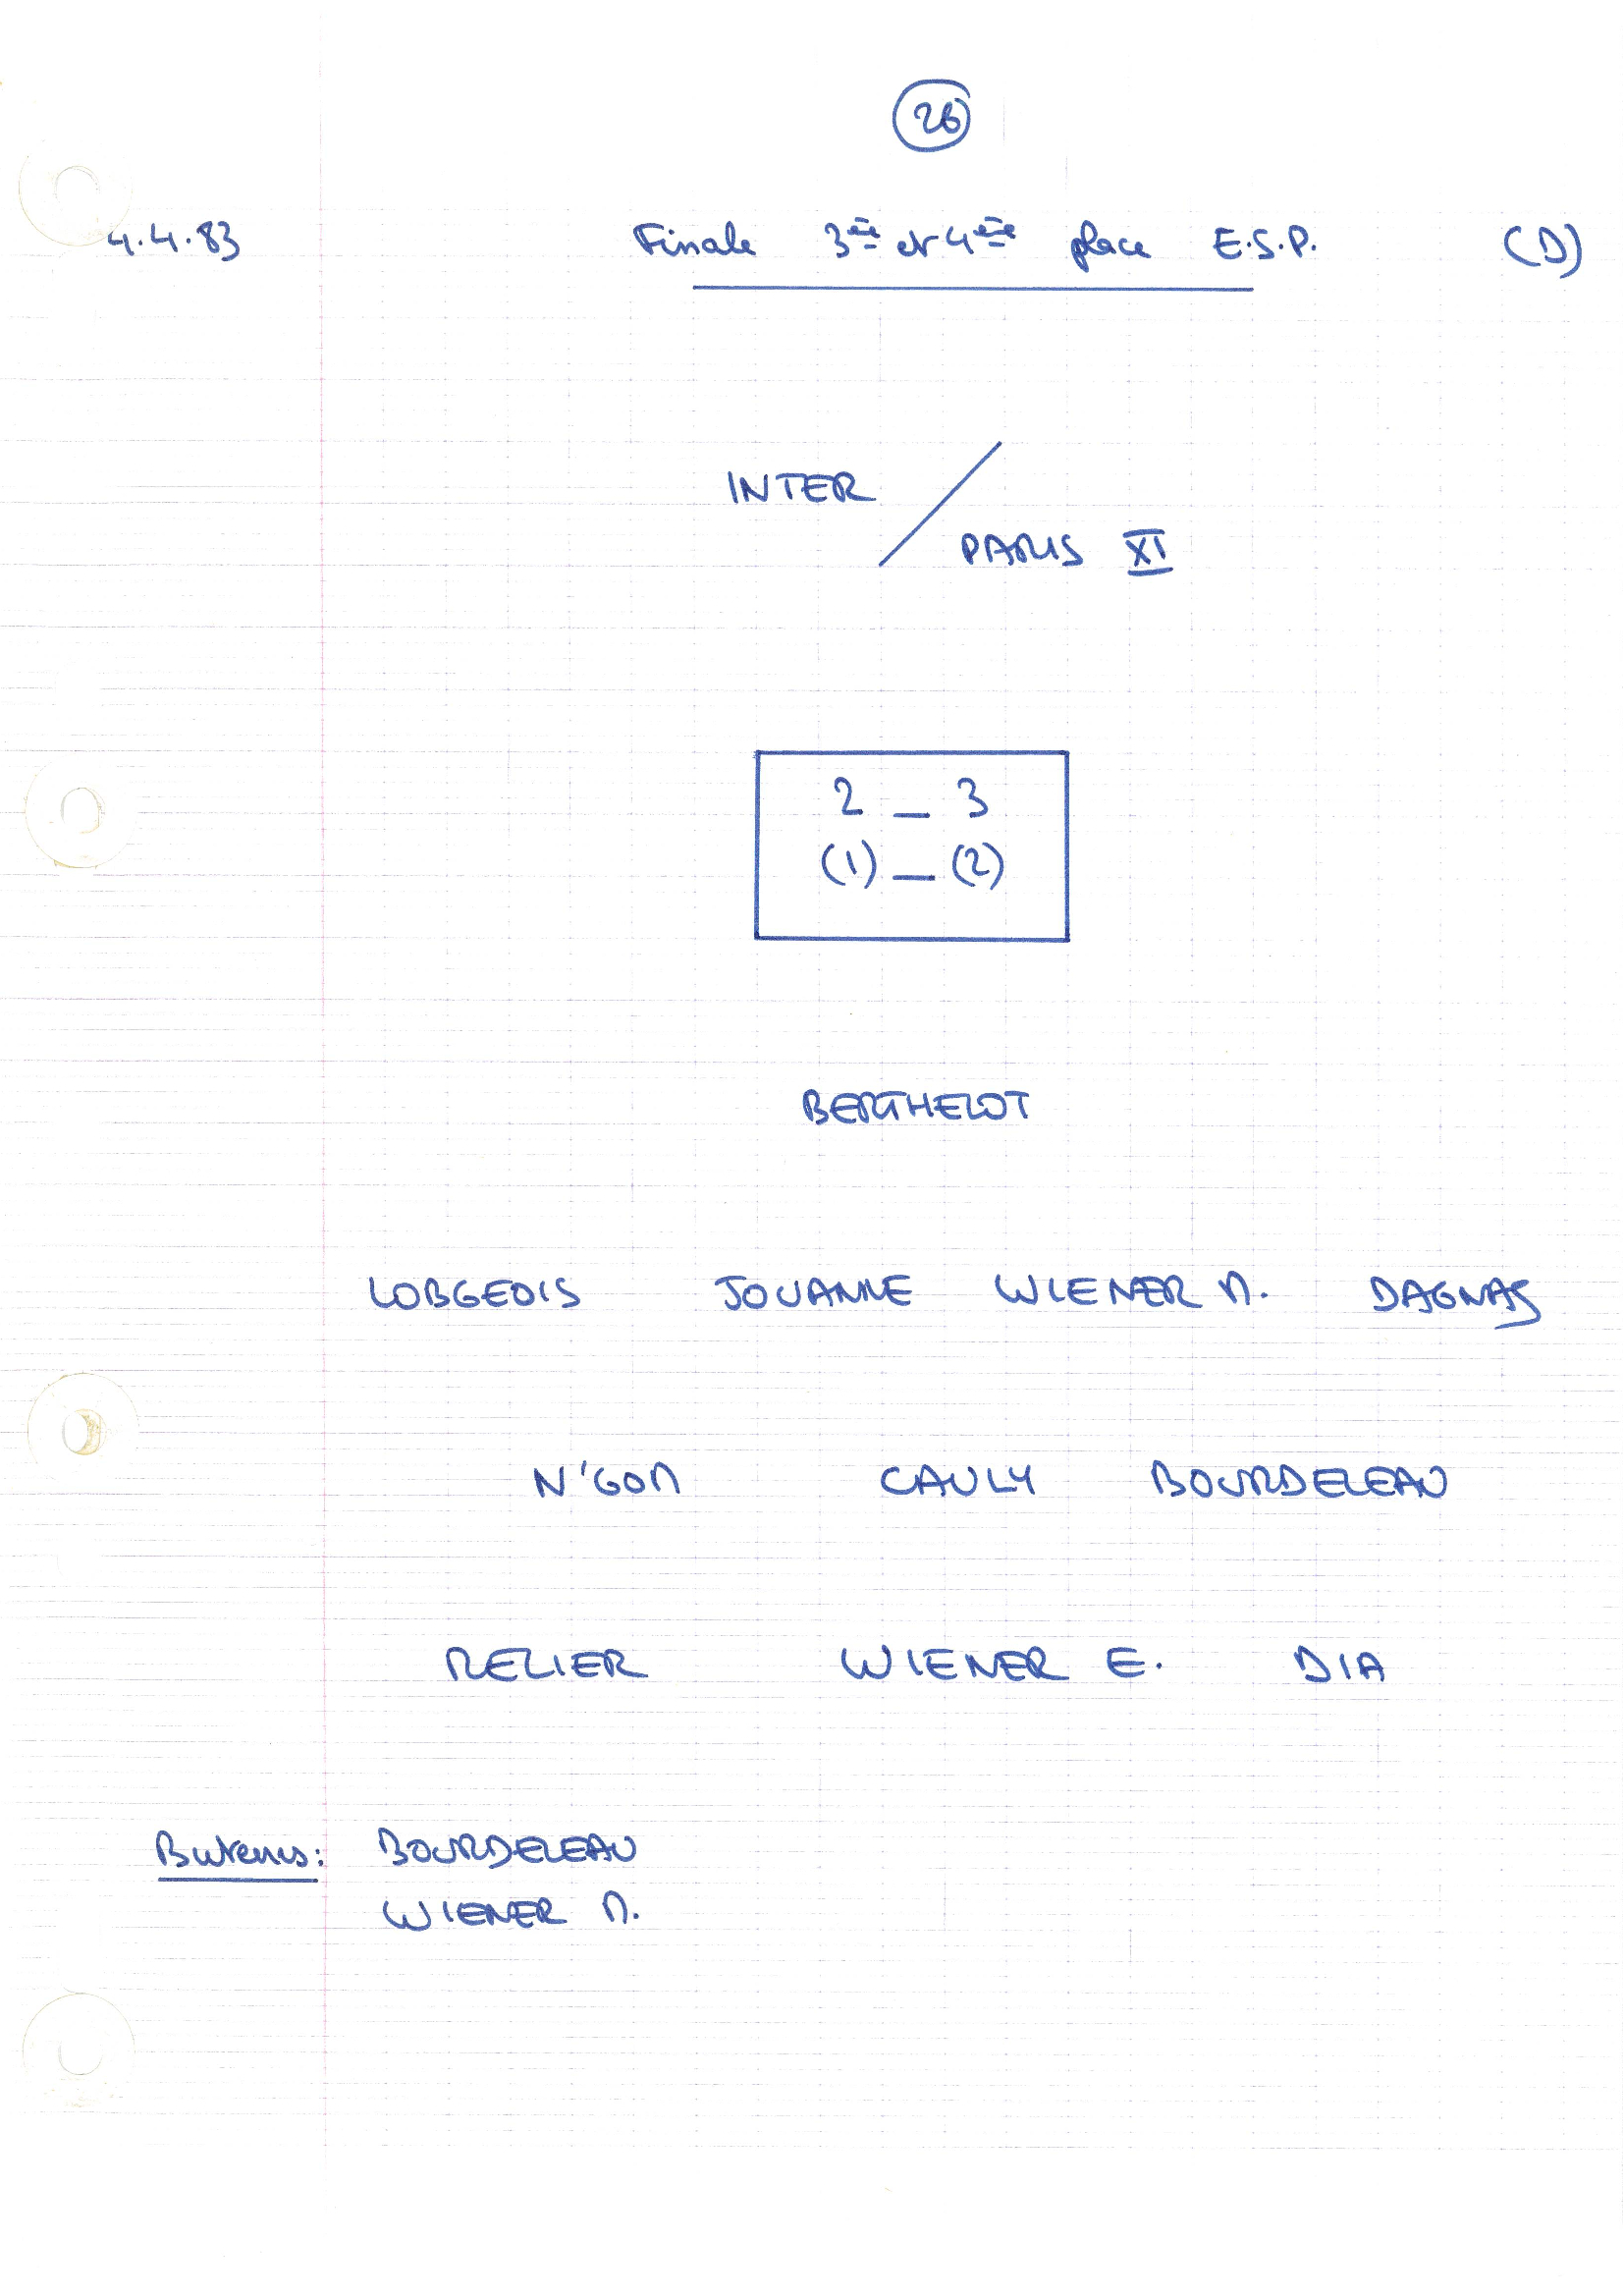 26
4.4.83 Finale 3ème et 4ème place E.S.P. (D)
INTER
PARIS XI
2 — 3
(1) — (2)
BERTHELOT
LOBGEOIS JOUANNE WIENER M. DAGNAS
N'GOM CAULY BOURDELEAU
RELIER WIENER E. DIA
Buteurs: BOURDELEAU
WIENER M.